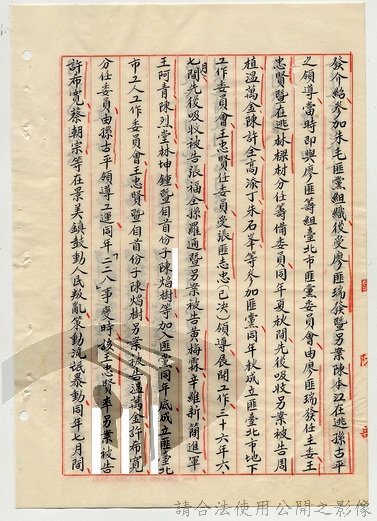 發介紹參加朱毛匪黨組織後受廖匪瑞發暨另案陳本江在逃孫古平
之領導當時即與廖匪等組臺北市匪黨委員會由廖匪瑞發任主委王
忠賢暨在逃林樑材分任籌備委員同年夏秋間先後吸收另案被告周
植溫萬金陳許全高添丁朱石峯等參加匪黨同年秋成立匪臺北市地下
工作委員會王忠賢任委員受張匪志忠(已決)領導展開工作三十六年六、
七月間先後吸收被告張福全孫羅通暨另案被告黃梅霖辛維新簡進軍
王阿青陳列堂林坤鐘暨自首份子陳焰樹等加入匪黨同年底成立匪臺北
市工人工作委員會王忠賢暨自首份子陳焰樹另案被告溫萬金許希寬
分任委員由孫古平領導工運同年「二二八」事變時該王忠賢率另案被告
許希寬蔡朝宗等在景美鎮鼓動人民叛亂策動流氓暴動同年七月間
國防部
請合法使用公開之影像